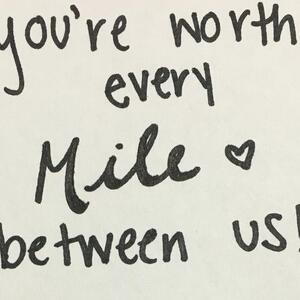 you're worth
every
Mile ♥
between us!